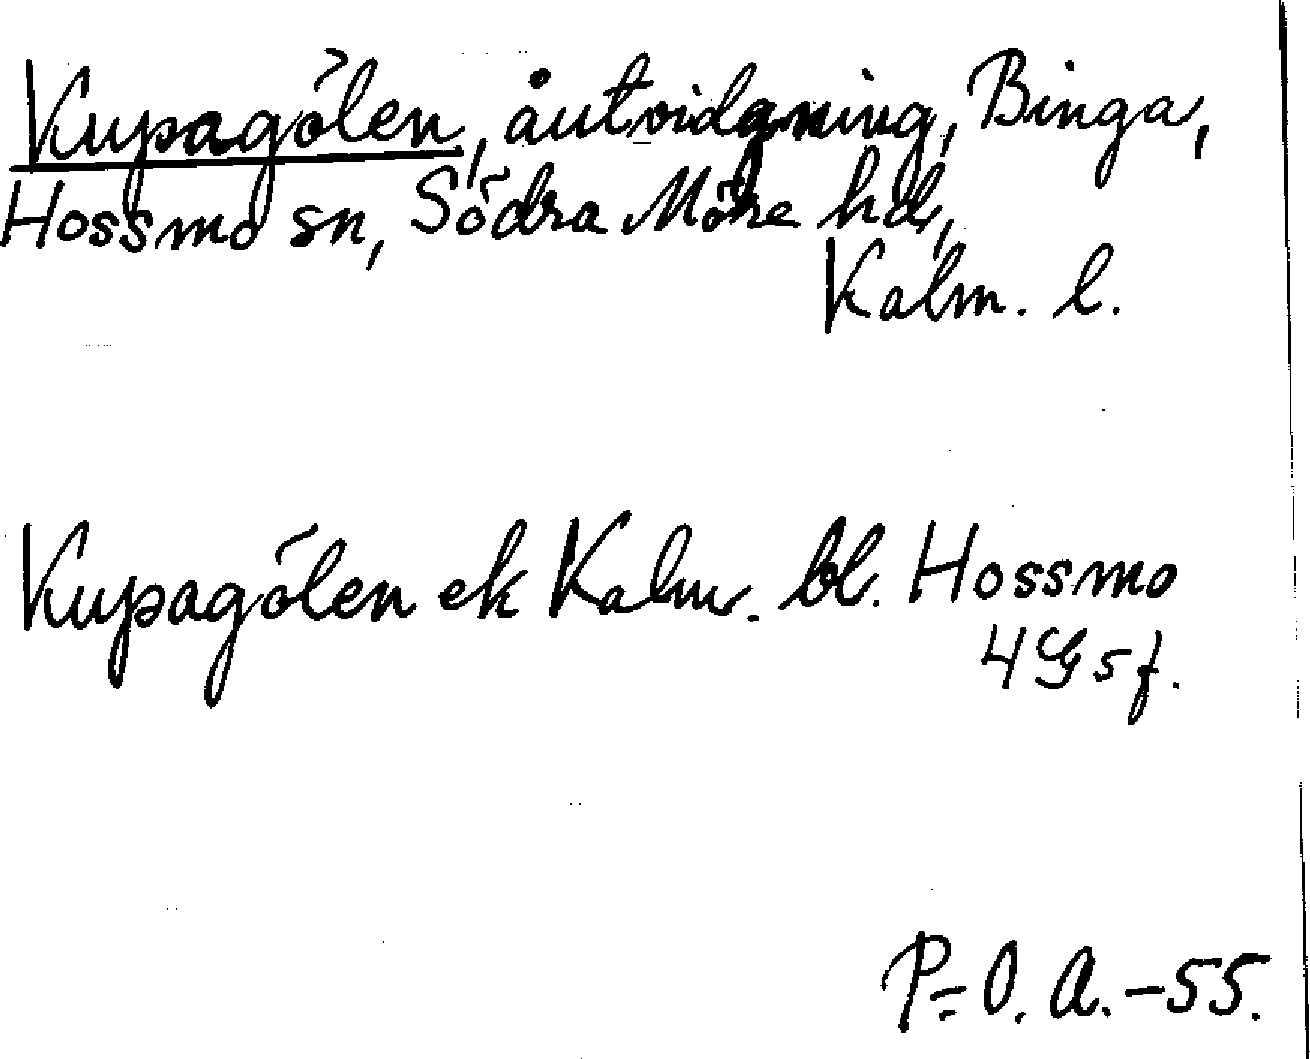 Kupagölen, åutvidgning, Binga,
Hossmo sn, Södra Möre hd,
Kalm. l.
Kupagölen ek Kalm. bl. Hossmo
4G5f.
P-O. A. -55.